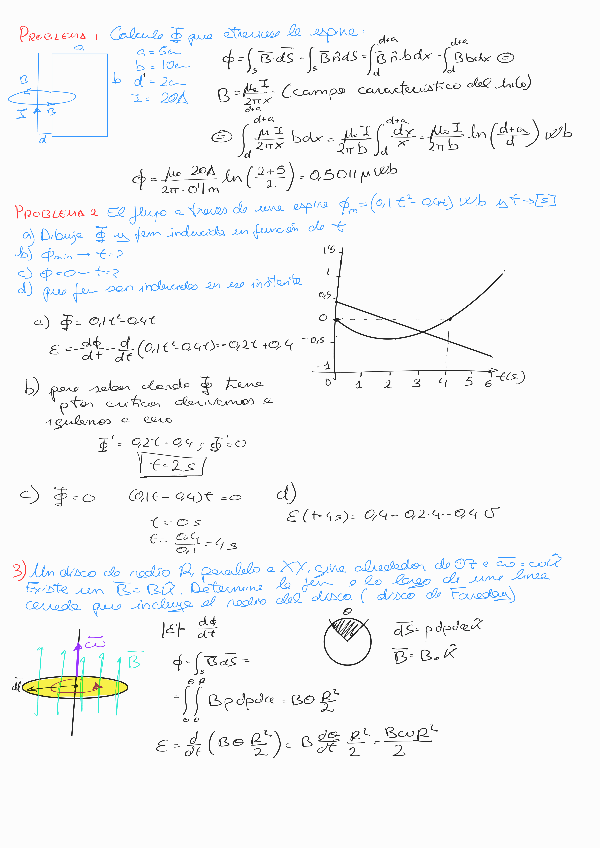 PROBLEMA 1 Calcule Φ que atraviesa la espira.
a
a = 5cm
b = 10cm
d = 2cm
I = 20A
B
b
I
B
d
ϕ = ∫s B̄·dS̄ = ∫s B̄ n̄ dS = ∫d^(d+a) B̄ n̄ · b dx = ∫d^(d+a) B b dx ⊜
B = μ₀ I / 2πx (campo característico del hilo)
⊜ ∫d^(d+a) μ₀ I / 2πx b dx = μ₀ I / 2π b ∫d^(d+a) dx/x = μ₀ I / 2π b ln((d+a)/d) Wb
ϕ = μ₀ 20A / 2π · 0'1m ln((2+5)/2) = 0,5011 μWb
PROBLEMA 2 El flujo a través de una espira ϕm = (0,1t² - 0,4t) Wb y t → [s]
a) Dibuja Φ y fem inducida en función de t
b) ϕmin → t = ?
c) ϕ = 0 → t = ?
d) que fem son inducidas en ese instante
a) Φ = 0,1t² - 0,4t
ε = -dϕ/dt = -d/dt (0,1t² - 0,4t) = -0,2t + 0,4
1
0,5
-0,5
-1
0 1 2 3 4 5 6 t(s)
b) para saber donde Φ tiene
ptos criticos derivamos e
igualamos a cero
Φ' = 0,2t - 0,4 ; Φ' = 0
t = 2 s
c) Φ = 0 (0,1t - 0,4)t = 0
t = 0 s
t = 0,4/0,1 = 4 s
d)
ε(t=4s) = 0,4 - 0,2·4 = -0,4 V
3) Un disco de radio R, paralelo a XY, gira alrededor de OZ a ω̄ = ωk̂
Existe un B̄ = Bk̂. Determine la fem a lo largo de una linea
cerrada que incluye el radio del disco (disco de Faraday)
ω̄
B̄
|ε| = dϕ/dt
ϕ = ∫s B̄ dS̄ =
= ∫₀^θ ∫₀^R B ρ dρ dα = Bθ R²/2
θ
dS̄ = ρ dρ dα k̂
B̄ = B₀ k̂
ε = d/dt (Bθ R²/2) = B dθ/dt R²/2 = BωR²/2